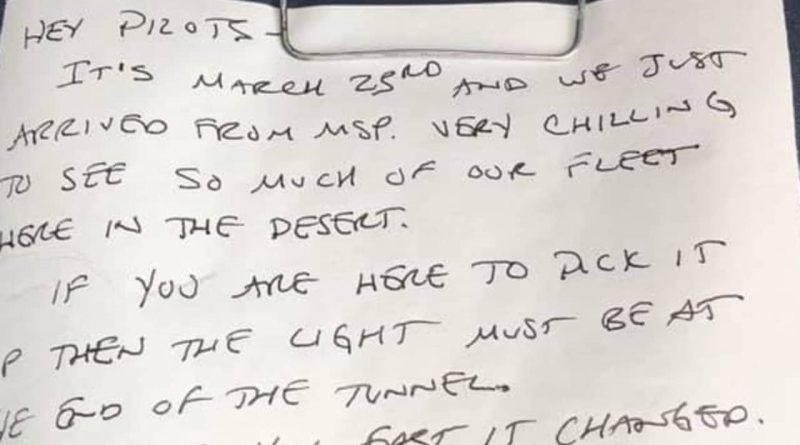 HEY PILOTS -
IT'S MARCH 23RD AND WE JUST
ARRIVED FROM MSP. VERY CHILLING
TO SEE SO MUCH OF OUR FLEET
HERE IN THE DESERT.
IF YOU ARE HERE TO PICK IT
P THEN THE LIGHT MUST BE AT
HE END OF THE TUNNEL.
FAST IT CHANGED.